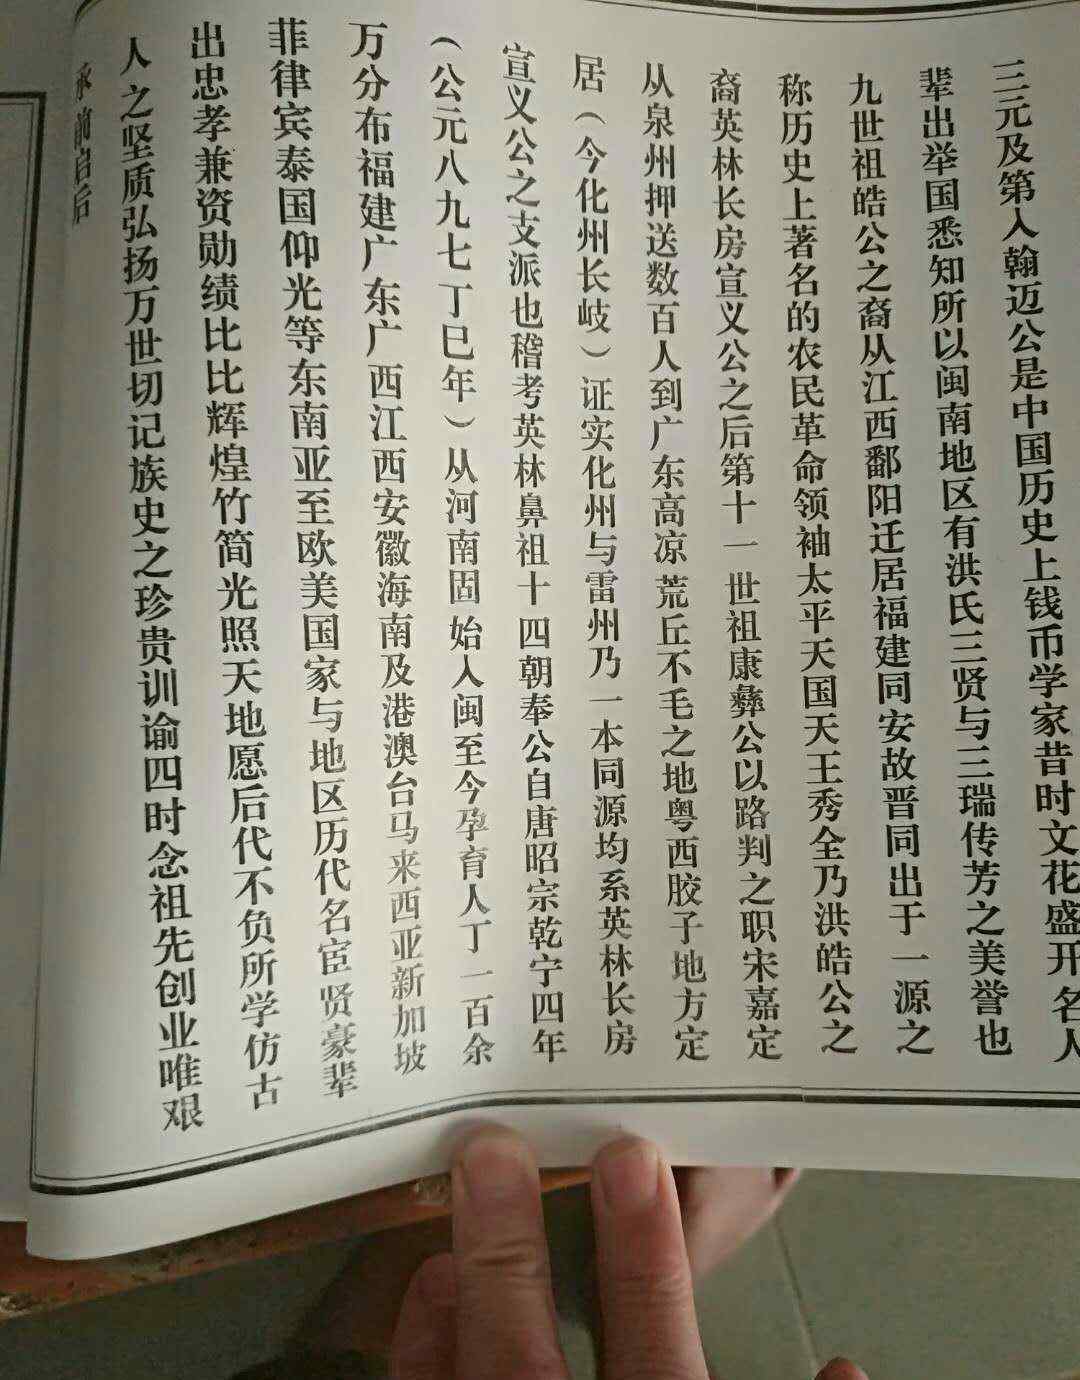 三元及第入翰迈公是中国历史上钱币学家昔时文花盛开名人
辈出举国悉知所以闽南地区有洪氏三贤与三瑞传芳之美誉也
九世祖皓公之裔从江西鄱阳迁居福建同安故晋同出于一源之
称历史上著名的农民革命领袖太平天国天王秀全乃洪皓公之
裔英林长房宣义公之后第十一世祖康彝公以路判之职宋嘉定
从泉州押送数百人到广东高凉荒丘不毛之地粤西胶子地方定
居（今化州长岐）证实化州与雷州乃一本同源均系英林长房
宣义公之支派也稽考英林鼻祖十四朝奉公自唐昭宗乾宁四年
（公元八九七丁巳年）从河南固始入闽至今孕育人丁一百余
万分布福建广东广西江西安徽海南及港澳台马来西亚新加坡
菲律宾泰国仰光等东南亚至欧美国家与地区历代名宦贤豪辈
出忠孝兼资勋绩比比辉煌竹简光照天地愿后代不负所学仿古
人之坚质弘扬万世切记族史之珍贵训谕四时念祖先创业唯艰
承前启后